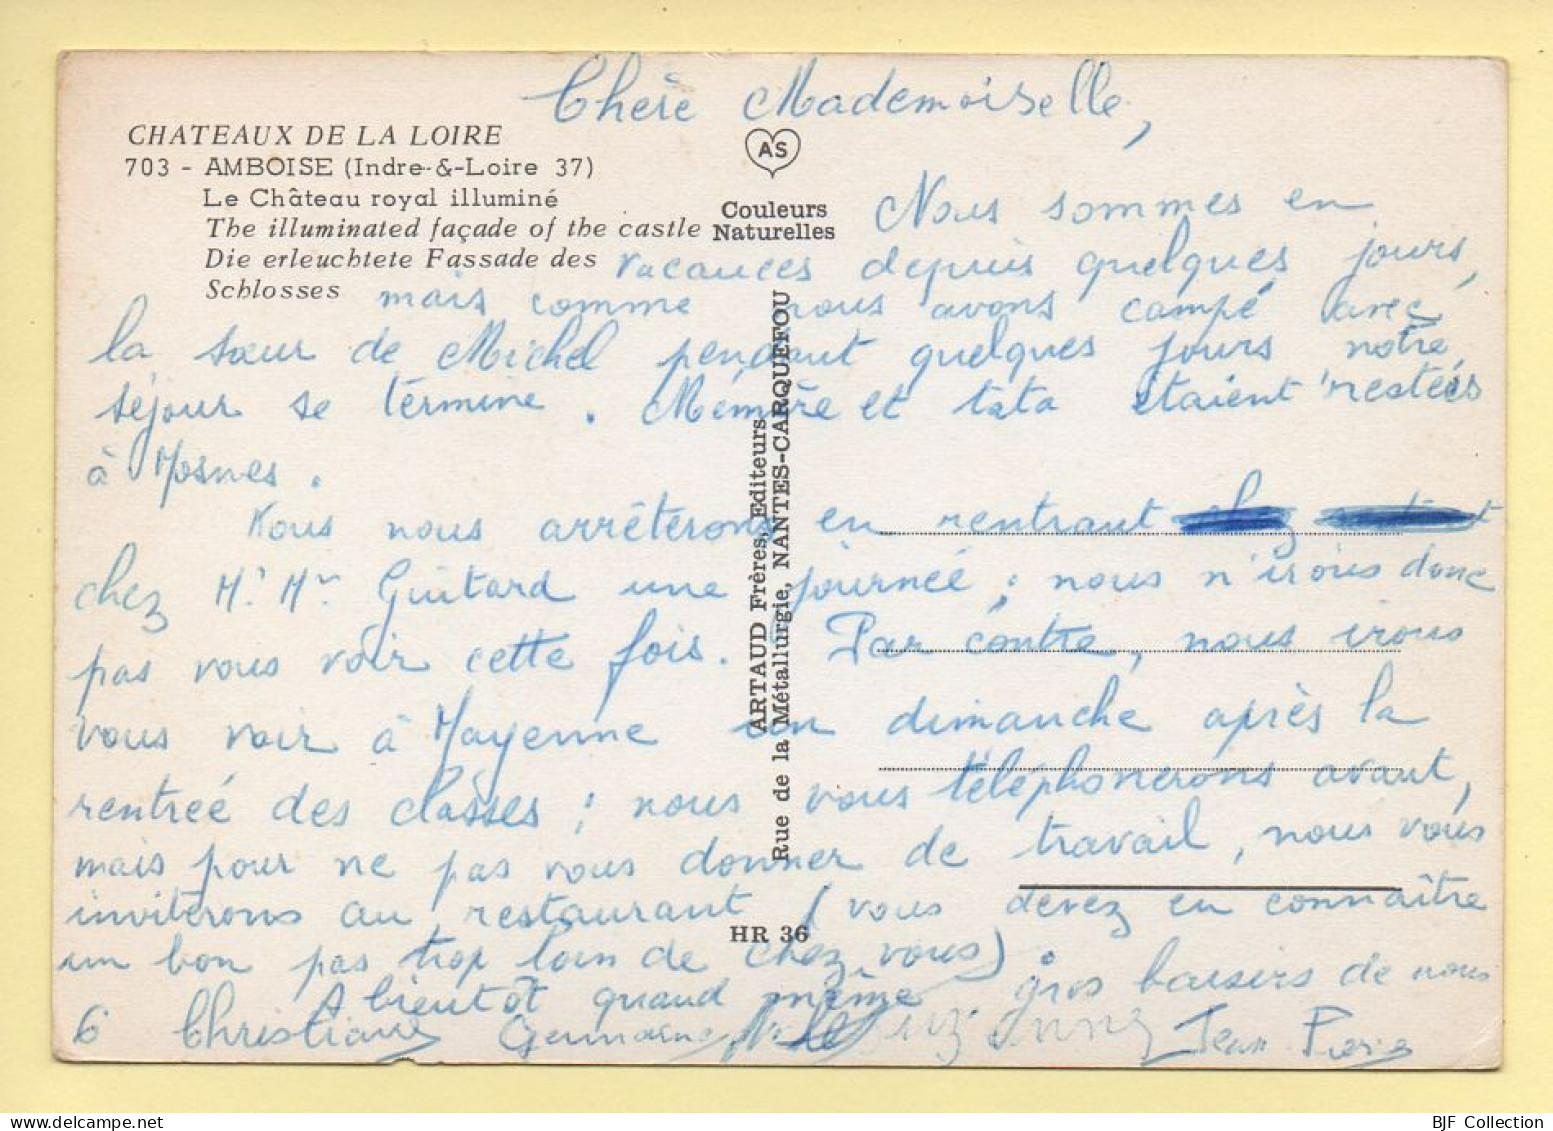 Chère Mademoiselle,
CHATEAUX DE LA LOIRE
703 - AMBOISE (Indre-&-Loire 37)
Le Château royal illuminé
The illuminated façade of the castle
Die erleuchtete Fassade des
Schlosses
AS
Couleurs
Naturelles
ARTAUD Frères, Editeurs
Rue de la Métallurgie, NANTES-CARQUEFOU
HR 36
Nous sommes en
vacances depuis quelques jours,
mais comme nous avons campé avec
la sœur de Michel pendant quelques jours notre
séjour se termine. Mémère et tata étaient restées
à Mosnes.
Nous nous arrêterons en rentrant
chez Mr Mme Guitard une journée ; nous n'irons donc
pas vous voir cette fois. Par contre, nous irons
vous voir à Mayenne un dimanche après la
rentrée des classes ; nous vous téléphonerons avant,
mais pour ne pas vous donner de travail, nous vous
inviterons au restaurant (vous devez en connaître
un bon pas trop loin de chez vous).
A bientôt quand même, gros baisers de nous
6 Christiane Germaine Suzanne Jean Pierre
BJF Collection